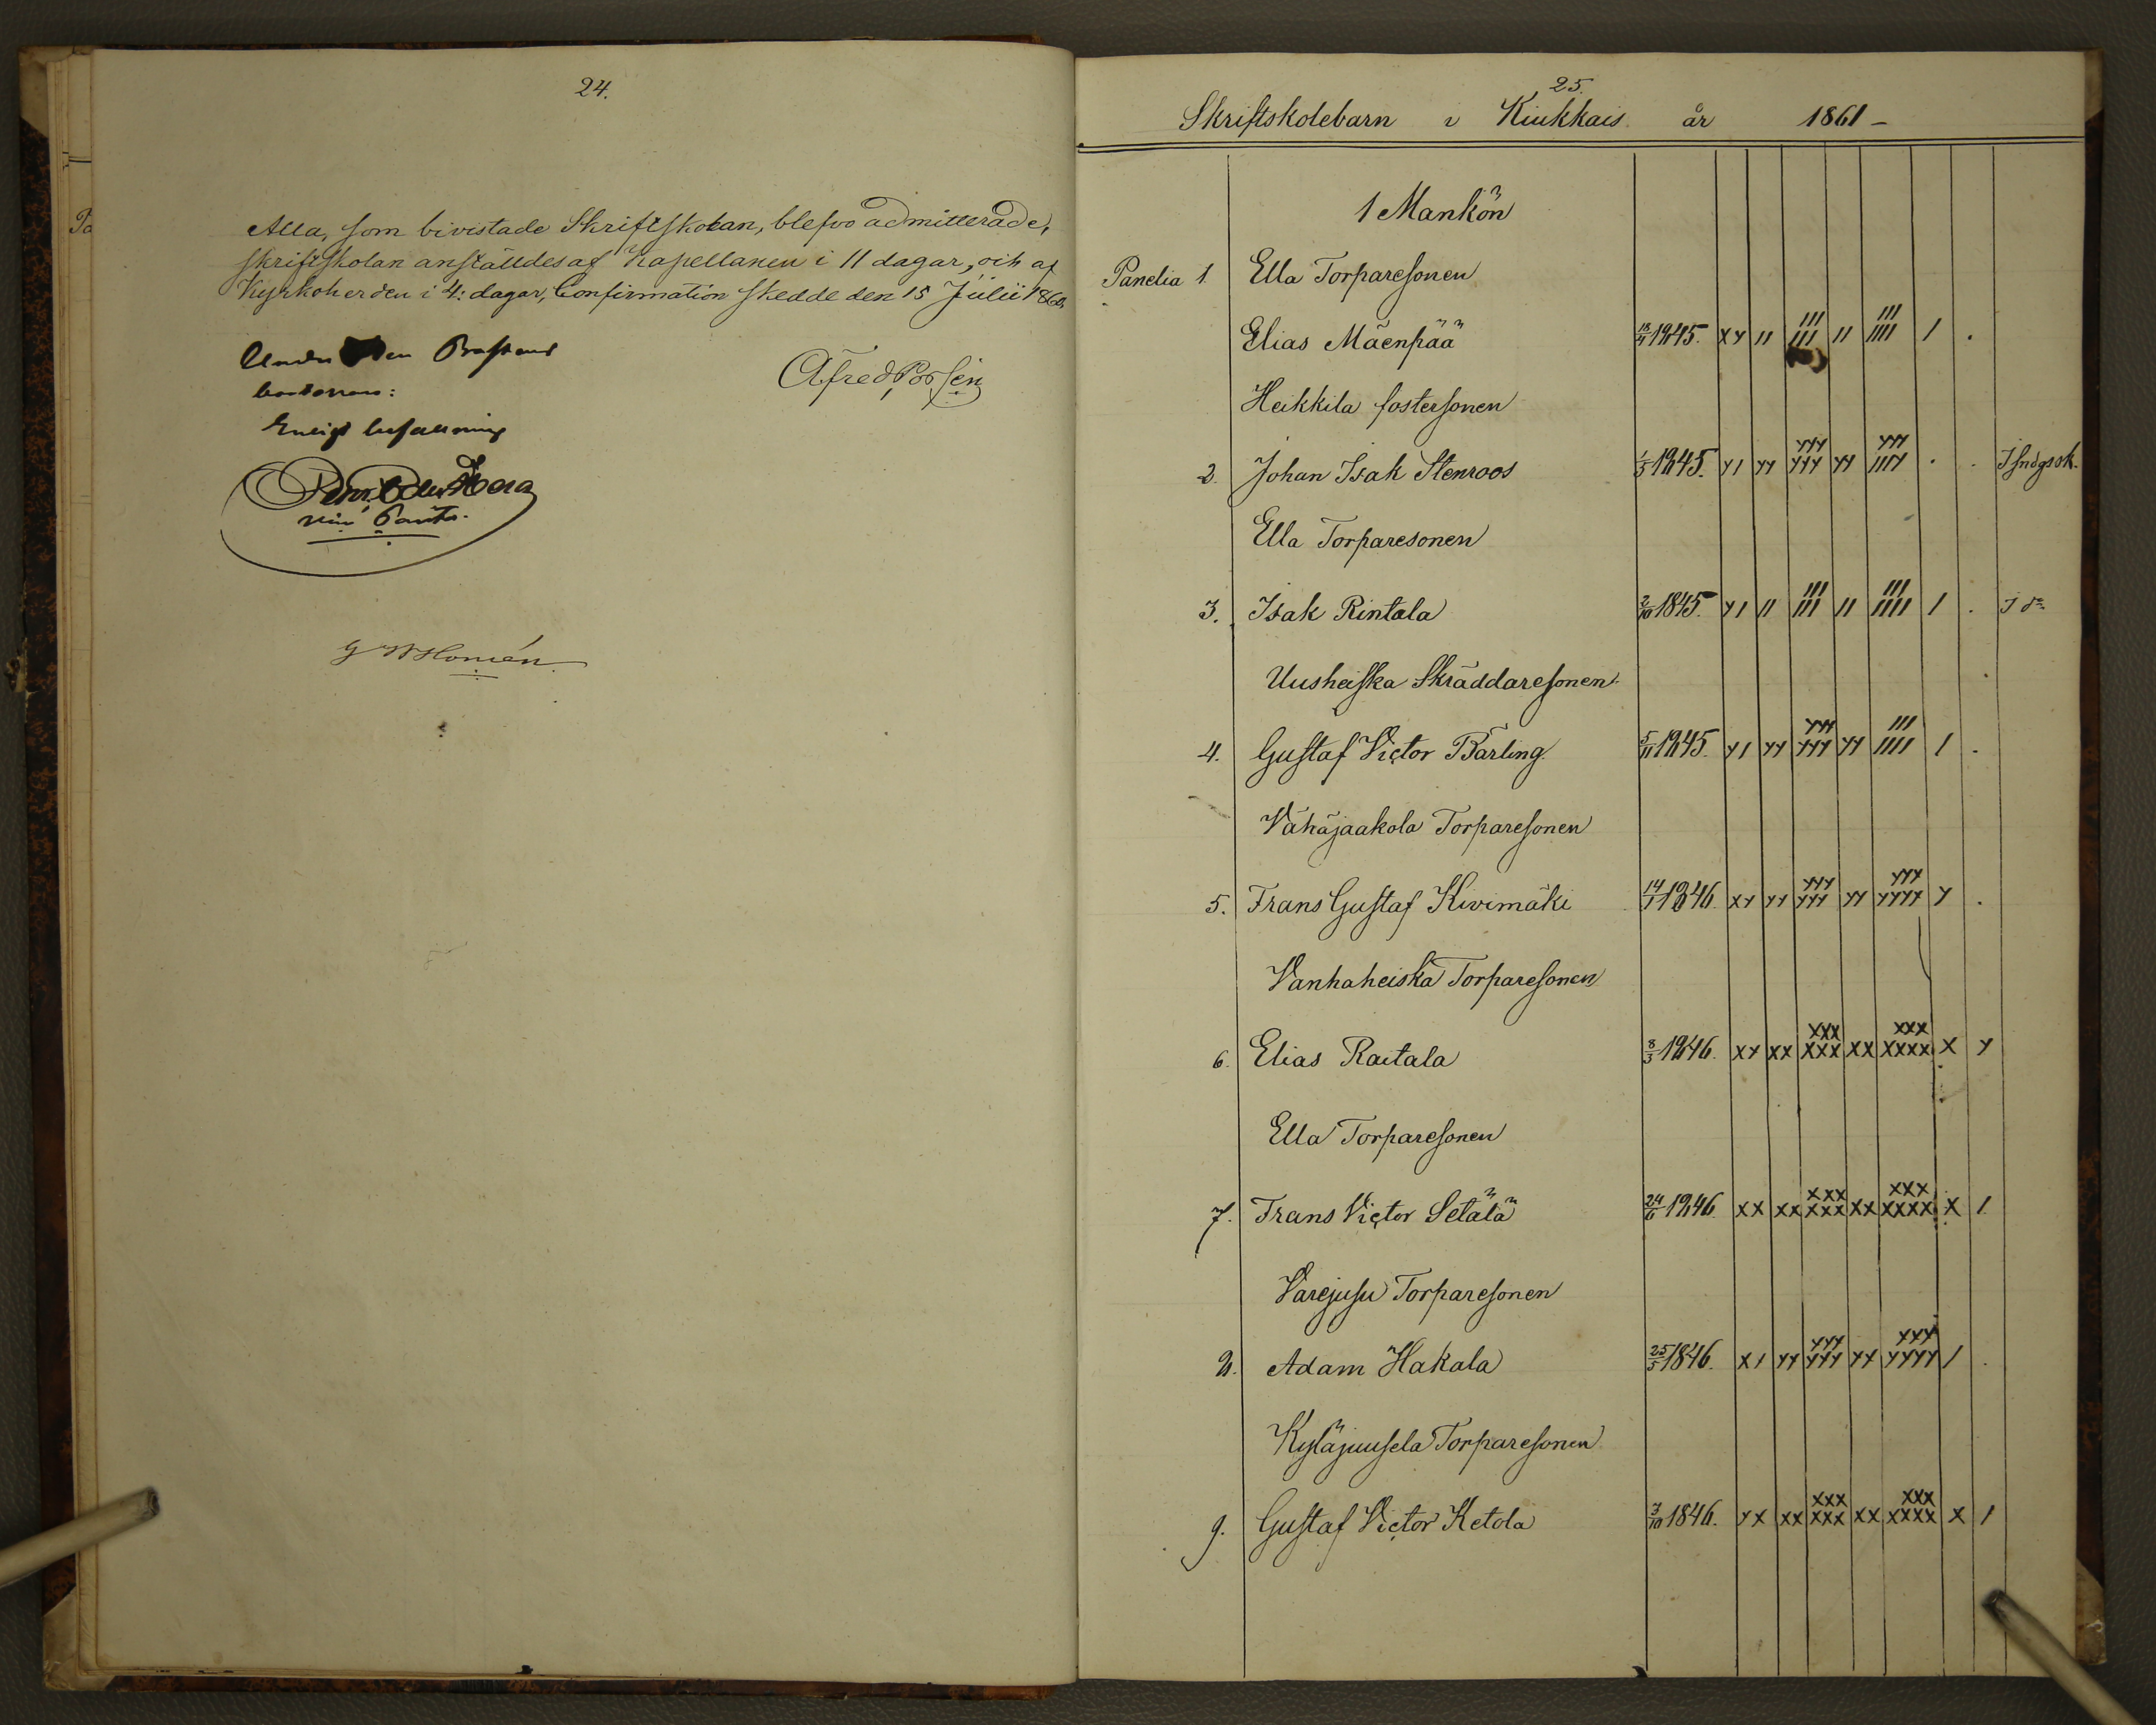 24.
Alla, som bivistade Skriftskolan, blefvo admitterade,
skriftskolan anställdes af Kapellanen i 11 dagar, och af
Kyrkoherden i 4: dagar, Confirmation skedde den 15 Julii 1860.
Alfred Porsén
Enligt befallning
G W Homén
25.
Skriftskolebarn i Kiukkais år 1861 –
1 Mankön
Panelia 1. Ella Torparesonen
Elias Mäenpää 1845. xy || ||| ||| || ||| |||| | .
Heikkila fostersonen
2. Johan Isak Stenroos 1/5 1845. y| yy yyy yyy yy yyy |||y . .
Ella Torparesonen
3. Isak Rintala 2/10 1845. y| || ||| ||| || ||| |||| | .
Uusheiska Skräddaresonen
4. Gustaf Victor Barling. 5/11 1845. y| yy yyy yyy yy ||| |||| | .
Vähäjaakola Torparesonen
5. Frans Gustaf Kivimäki 14/1 1846. xy yy yyy yyy yy yyy yyyy y .
Vanhaheiska Torparesonen
6. Elias Raitala 8/3 1846. xy xx xxx xxx xx xxx xxxx x y
Ella Torparesonen
7. Frans Victor Setälä 24/6 1846. xx xx xxx xxx xx xxx xxxx x |
Varejusu Torparesonen
8. Adam Hakala 25/5 1846. xy yy yyy yyy yy xxy yyyy | .
Kyläjuusela Torparesonen
9. Gustaf Victor Ketola 3/10 1846. yx xx xxx xxx xx xxx xxxx x |